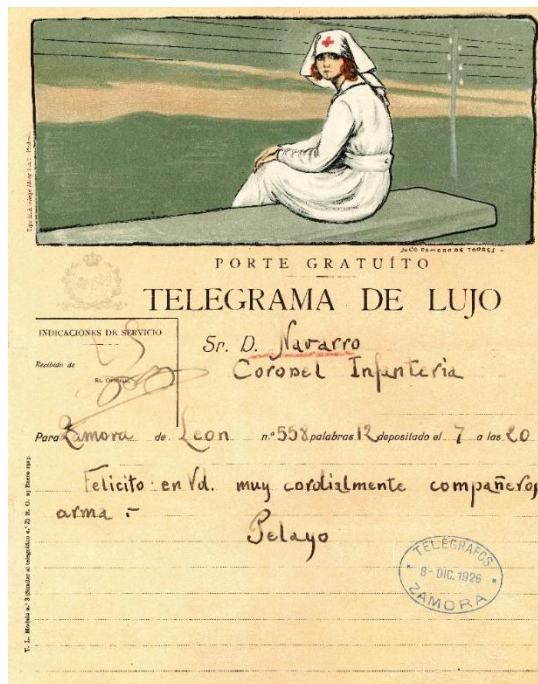 JULIO ROMERO DE TORRES
PORTE GRATUÍTO
TELEGRAMA DE LUJO
INDICACIONES DE SERVICIO
Recibido de
EL OFICIAL
Sr. D. Navarro
Coronel Infanteria
Para Zamora de Leon n.º 558 palabras 12 depositado el 7 a las 20
Felicito en Vd. muy cordialmente compañeros
arma =
Pelayo
TELEGRAFOS
8 - DIC. 1926
ZAMORA